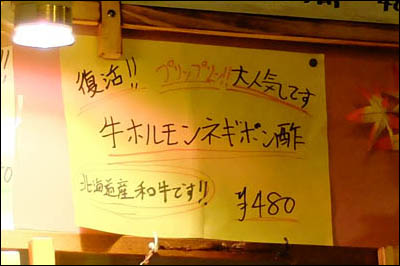 復活!! プリップリッ!! 大人気してす
牛ホルモンネギポン酢
北海道産和牛です!!
¥480